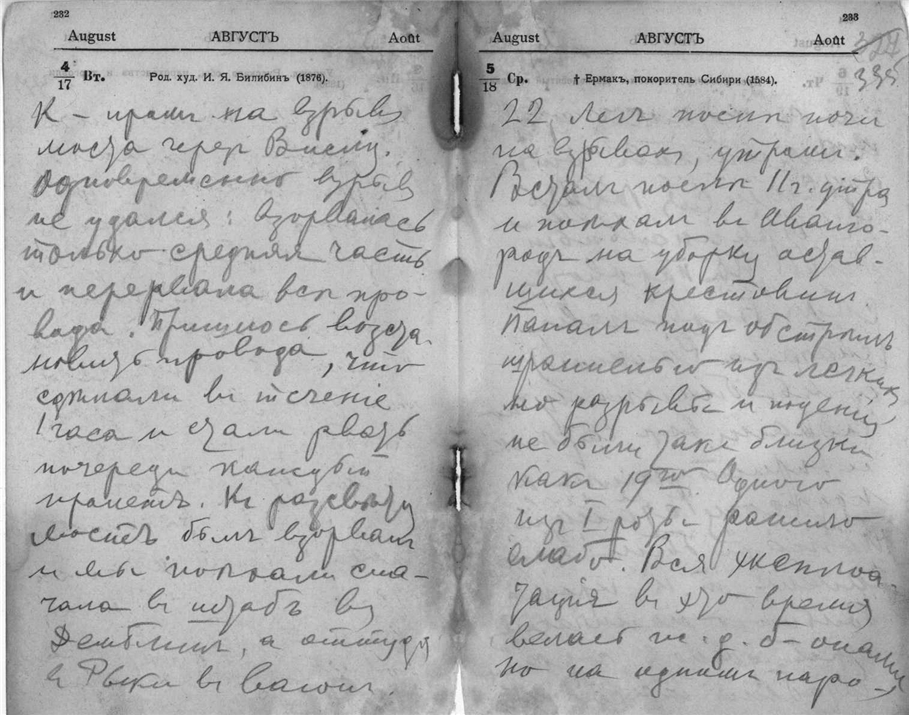 232
August АВГУСТЪ Août
4/17 Вт. Род. худ. И. Я. Билибинъ (1876).
К – на взрывъ
моста через Вислу.
Одновременно взрывъ
не удался: взорвалась
только средняя часть
и перервала все про-
вода. Пришлось возста
новлять провода, что
сделали въ теченіе
1 часа и стали рвать
поочереди каждый
пролетъ. Къ разсвету
мостъ былъ взорванъ
и мы поехали сна-
чала въ штабъ въ
Демблинъ, а оттуда
въ Рыки въ вагонъ.
233
August АВГУСТЪ Août
334
335
5/18 Ср. † Ермакъ, покоритель Сибири (1584).
22 после ночи
на взрывахъ, утромъ.
Всталъ после 11 ч. утра
и поехали въ Иванго-
родъ на уборку остав-
шихся крестовинъ.
Попали подъ обстрелъ
шрапнелью изъ легкихъ,
но разрывы и паденія
не были такъ близки
какъ 19го. Одного
изъ I роты ранило
слабо. Вся эксплоа-
тація въ это время
ж. д. б-она
но на одномъ паро-